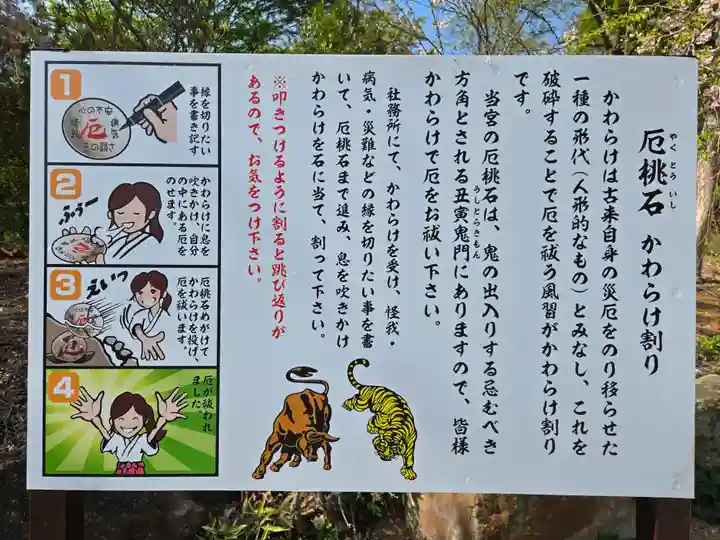 厄桃石 かわらけ割り
やく とう いし
かわらけは古来自身の災厄をのり移らせた
一種の形代（人形的なもの）とみなし、これを
破砕することで厄を祓う風習がかわらけ割り
です。
当宮の厄桃石は、鬼の出入りする忌むべき
方角とされる丑寅鬼門にありますので、皆様
うしとらきもん
かわらけで厄をお祓い下さい。
社務所にて、かわらけを受け、怪我・
病気・災難などの縁を切りたい事を書
いて、厄桃石まで進み、息を吹きかけ
かわらけを石に当て、割って下さい。
※叩きつけるように割ると跳び返りが
あるので、お気をつけ下さい。
1
縁を切りたい
事を書き記す
心の不安
厄
病気
怪我
心の弱さ
2
かわらけに息を
吹きかけ、自分
の中にある厄を
のせます。
ふぅー
3
厄桃石めがけて
かわらけを投げ、
厄を祓います。
えいっ
厄
4
厄が祓われ
ました。